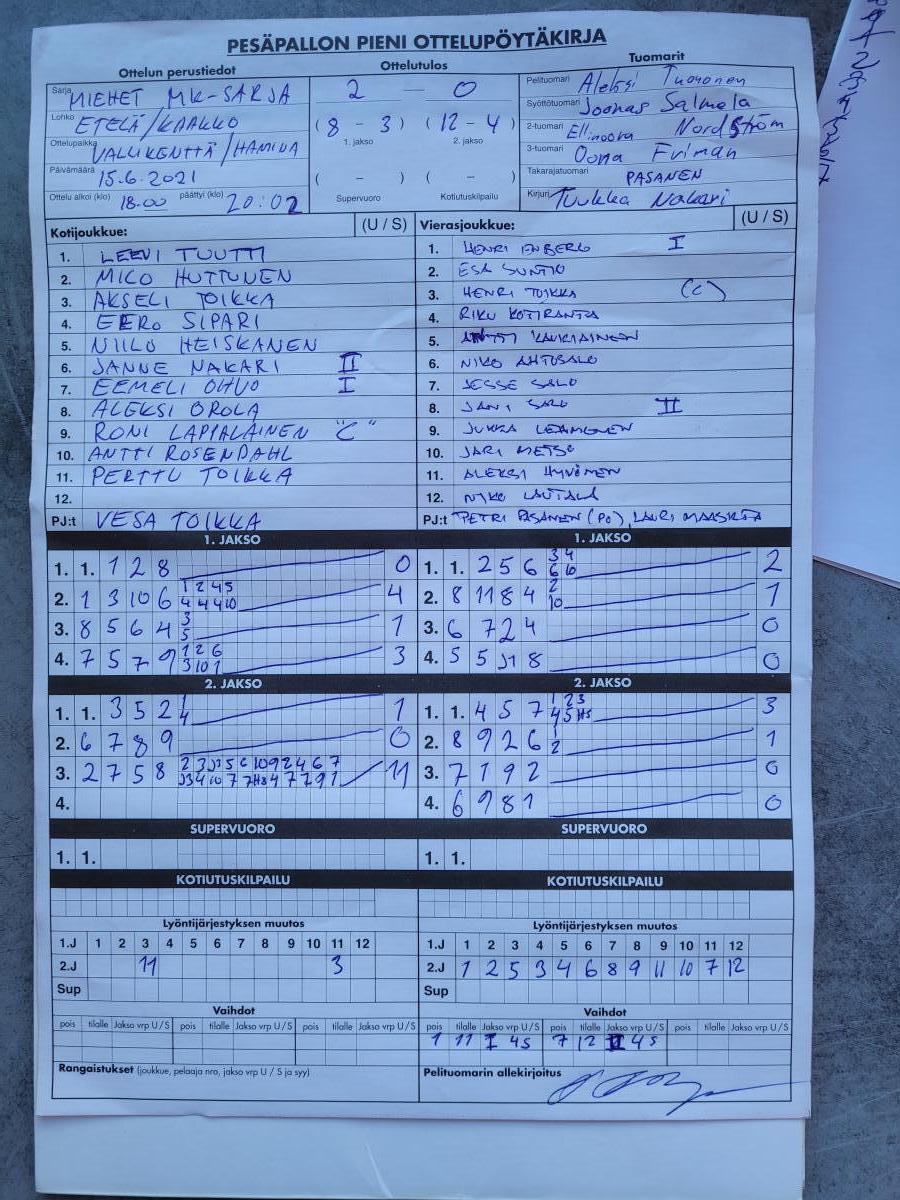 PESÄPALLON PIENI OTTELUPÖYTÄKIRJA
Ottelun perustiedot
Ottelutulos
Tuomarit
Sarja MIEHET MK-SARJA
2 — 0
Pelituomari Aleksi Tuononen
Lohko ETELÄ/KAAKKO
Syöttötuomari Joonas Salmela
Ottelupaikka VALLIKENTTÄ/HAMINA
(8 - 3) (12 - 4)
1. jakso 2. jakso
2-tuomari Ellinoora Nordström
3-tuomari Oona Friman
Päivämäärä 15.6.2021
( - ) ( - )
Supervuoro Kotiutuskilpailu
Takarajatuomari PASANEN
Ottelu alkoi (klo) 18.00 päättyi (klo) 20:02
Kirjuri Tuukka Nakari
Kotijoukkue: (U / S)
1. LEEVI TUUTTI
2. MICO HUTTUNEN
3. AKSELI TOIKKA
4. EERO SIPARI
5. NIILO HEISKANEN
6. JANNE NAKARI II
7. EEMELI OHVO I
8. ALEKSI OROLA
9. RONI LAPPALAINEN "C"
10. ANTTI ROSENDAHL
11. PERTTU TOIKKA
12.
PJ:t VESA TOIKKA
Vierasjoukkue: (U / S)
1. HENRI ENBERG I
2. ESA SUNTIO
3. HENRI TOIKKA (C)
4. RIKU KOTIRANTA
5. ANTTI KAUKIAINEN
6. NIKO AHTOSALO
7. JESSE SALO
8. JANI SALO II
9. JUKKA
10. JARI METSO
11. ALEKSI HYVÖNEN
12. NIKO LAUTALA
PJ:t PETRI PASANEN (PO), LAURI
1. JAKSO
1. 1. 1 2 8 0
2. 1 3 10 6 1 2 4 5 4
4 4 4 10
3. 8 5 6 4 3 1
5
4. 7 5 7 9 1 2 6 3
3 10 1
2. JAKSO
1. 1. 3 5 2 1 1
4
2. 6 7 8 9 0
3. 2 7 5 8 11
4.
SUPERVUORO
1. 1.
KOTIUTUSKILPAILU
1. JAKSO
1. 1. 2 5 6 3 4 2
6 10
2. 8 11 8 4 2 1
10
3. 6 7 2 4 0
4. 5 5 J1 8 0
2. JAKSO
1. 1. 4 5 7 1 2 3 3
4 5 HS
2. 8 9 2 6 1 1
2
3. 7 1 9 2 0
4. 6 9 8 1 0
SUPERVUORO
1. 1.
KOTIUTUSKILPAILU
Lyöntijärjestyksen muutos
1.J 1 2 3 4 5 6 7 8 9 10 11 12
2.J 11 3
Sup
Vaihdot
pois tilalle Jakso vrp U / S pois tilalle Jakso vrp U / S pois tilalle Jakso vrp U / S
Rangaistukset (joukkue, pelaaja nro, jakso vrp U / S ja syy)
Lyöntijärjestyksen muutos
1.J 1 2 3 4 5 6 7 8 9 10 11 12
2.J 1 2 5 3 4 6 8 9 11 10 7 12
Sup
Vaihdot
pois tilalle Jakso vrp U / S pois tilalle Jakso vrp U / S pois tilalle Jakso vrp U / S
1 11 I 4S 7 12 II 4S
Pelituomarin allekirjoitus